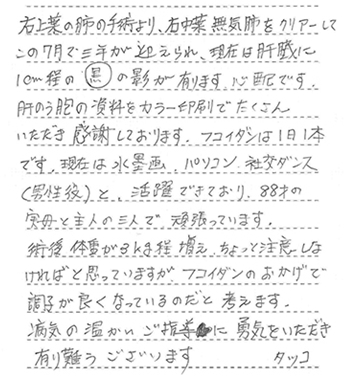 右上葉の肺の手術より、右中葉無気肺をクリアーして
この7月で三年が迎えられ、現在は肝臓に
1cm程の黒の影が有ります。心配です。
肝のう胞の資料をカラー印刷でたくさん
いただき感謝しております。フコイダンは1日1本
です。現在は水墨画、パソコン、社交ダンス
(男性役)と、活躍できており、88才の
実母と主人の三人で頑張っています。
術後、体重が3kg程増え、ちょっと注意しな
ければと思っていますが、フコイダンのおかげで
調子が良くなっているのだと考えます。
病気の温かいご指導に勇気をいただき
有り難うございます タツコ